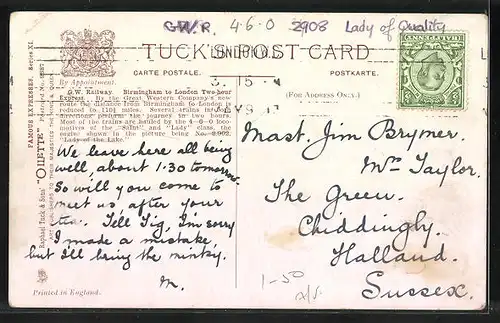 G.W.R. 4-6-0 2908 Lady of Quality
TUCK'S POST CARD
CARTE POSTALE. POSTKARTE.
(FOR ADDRESS ONLY.)
By Appointment.
LONDON
3. 15
MY 9
FAMOUS EXPRESSES. Series XI.
Raphael Tuck & Sons' "OILETTE"
G.W. Railway. Birmingham to London Two-hour
Express. By the Great Western Company's new
route the distance from Birmingham to London is
reduced to
directions perform the journey in two hours.
Most of the trains are hauled by the 4-6-0 loco-
motives of the "Saint" and "Lady" class, the
engine shown in the picture being No. 2,902,
"Lady of the Lake."
We leave here all being
well, about 1.30 tomorrow.
So will you come to
meet us after your
tea. Tell Tig, I'm sorry
I made a mistake,
but I'll bring the
M.
Mast. Jim Brymer.
Mrs Taylor.
The Green.
Chiddingly.
Halland.
Sussex.
1-50
Printed in England.